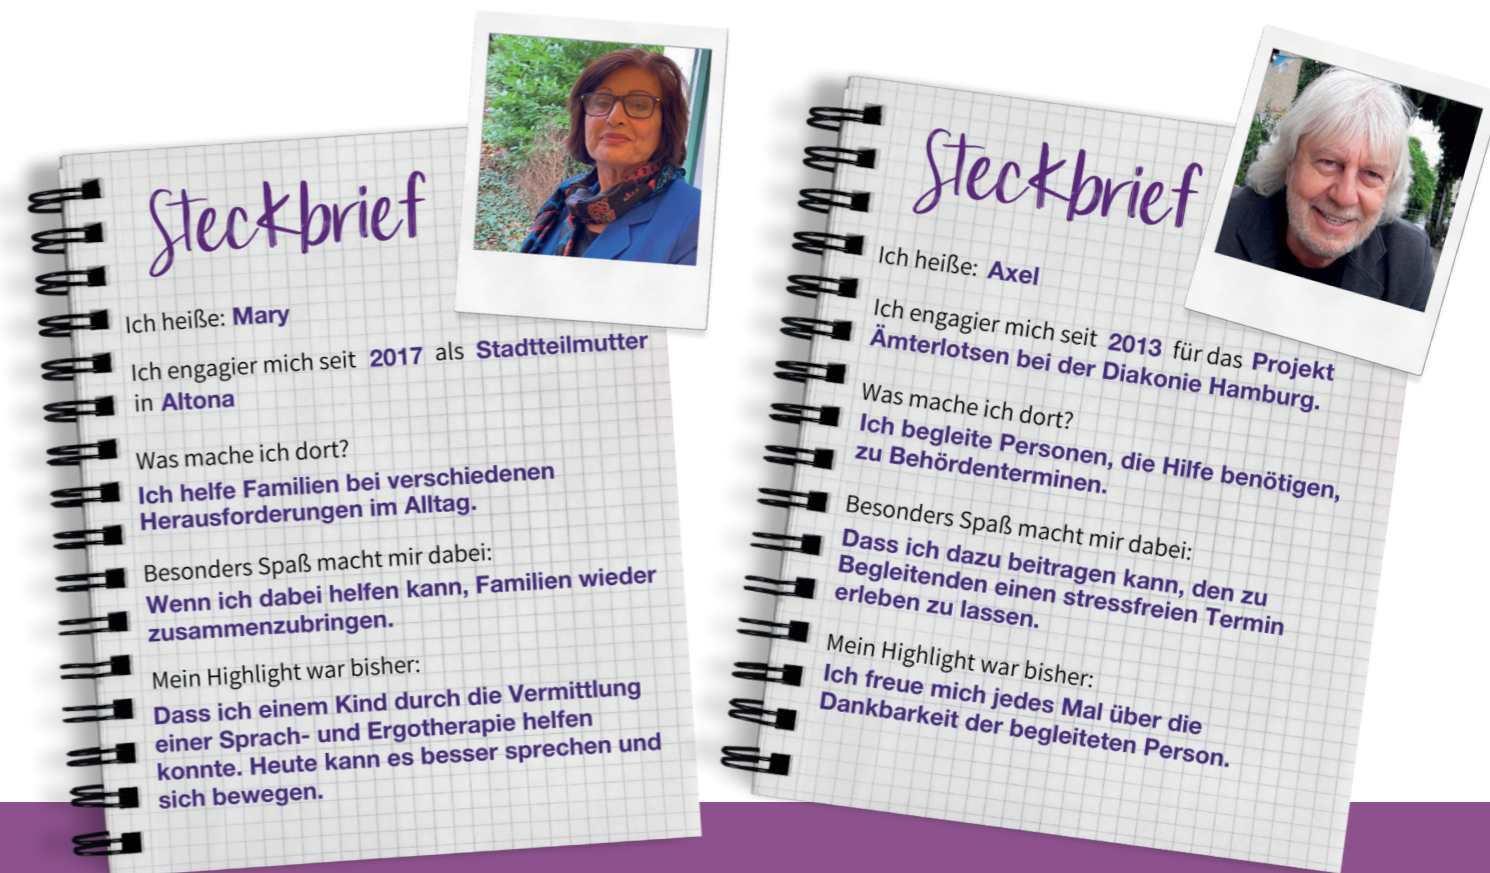 Steckbrief
Ich heiße: Mary
Ich engagier mich seit 2017 als Stadtteilmutter
in Altona
Was mache ich dort?
Ich helfe Familien bei verschiedenen
Herausforderungen im Alltag.
Besonders Spaß macht mir dabei:
Wenn ich dabei helfen kann, Familien wieder
zusammenzubringen.
Mein Highlight war bisher:
Dass ich einem Kind durch die Vermittlung
einer Sprach- und Ergotherapie helfen
konnte. Heute kann es besser sprechen und
sich bewegen.
Steckbrief
Ich heiße: Axel
Ich engagier mich seit 2013 für das Projekt
Ämterlotsen bei der Diakonie Hamburg.
Was mache ich dort?
Ich begleite Personen, die Hilfe benötigen,
zu Behördenterminen.
Besonders Spaß macht mir dabei:
Dass ich dazu beitragen kann, den zu
Begleitenden einen stressfreien Termin
erleben zu lassen.
Mein Highlight war bisher:
Ich freue mich jedes Mal über die
Dankbarkeit der begleiteten Person.